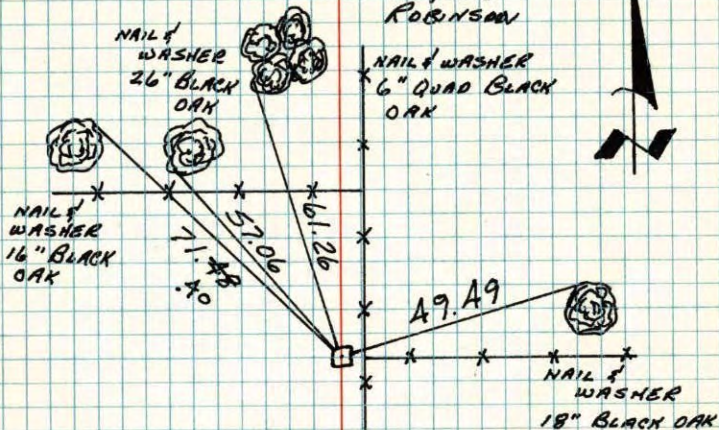 ROBINSON
NAIL &
WASHER
26" BLACK
OAK
NAIL & WASHER
6" QUAD BLACK
OAK
NAIL &
WASHER
16" BLACK
OAK
71.48
.40
57.06
61.26
49.49
NAIL &
WASHER
18" BLACK OAK
N